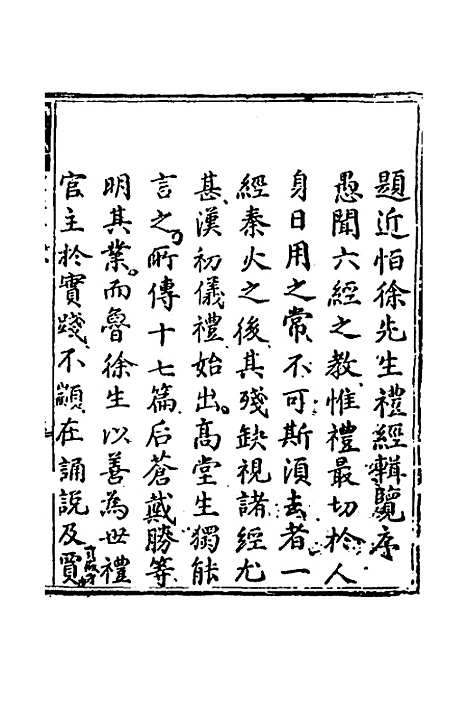 題近怕徐先生禮經輯覽序
愚聞六經之教惟禮最切於人
身日用之常不可斯湏去者一
經秦火之後其殘缺視諸經尤
甚漢初儀禮始出高堂生獨能
言之所傳十七篇后蒼戴勝等
明其業而魯徐生以善為世禮
官主於實踐不顓在誦說及賈